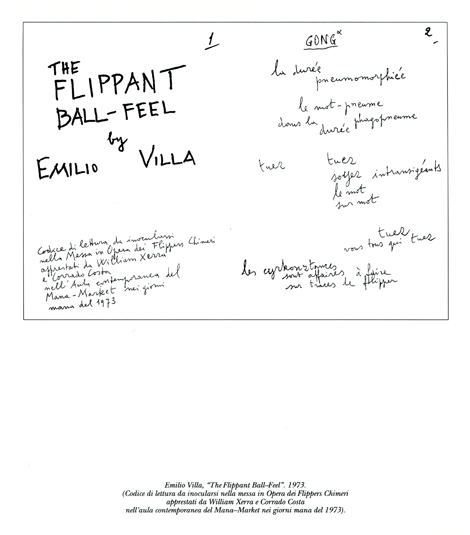 1
THE
FLIPPANT
BALL-FEEL
by
EMILIO VILLA
Codice di lettura da inocularsi
nella Messa in Opera dei Flippers Chimeri
apprestati da William Xerra
e Corrado Costa
nell'Aula contemporanea del
Mana-Market nei giorni
mana del 1973
2
GONG
la durée
pneumomorphiée
le mot-pneume
dans la durée phagopneume
tuez tuez
soyez intransigéants
le mot
sur mot
tuez
vous tous qui tuez
les cyrkonztances
sont affairés à faire
sur traces le flipper
Emilio Villa, "The Flippant Ball–Feel". 1973.
(Codice di lettura da inocularsi nella messa in Opera dei Flippers Chimeri
apprestati da William Xerra e Corrado Costa
nell'aula contemporanea del Mana–Market nei giorni mana del 1973).